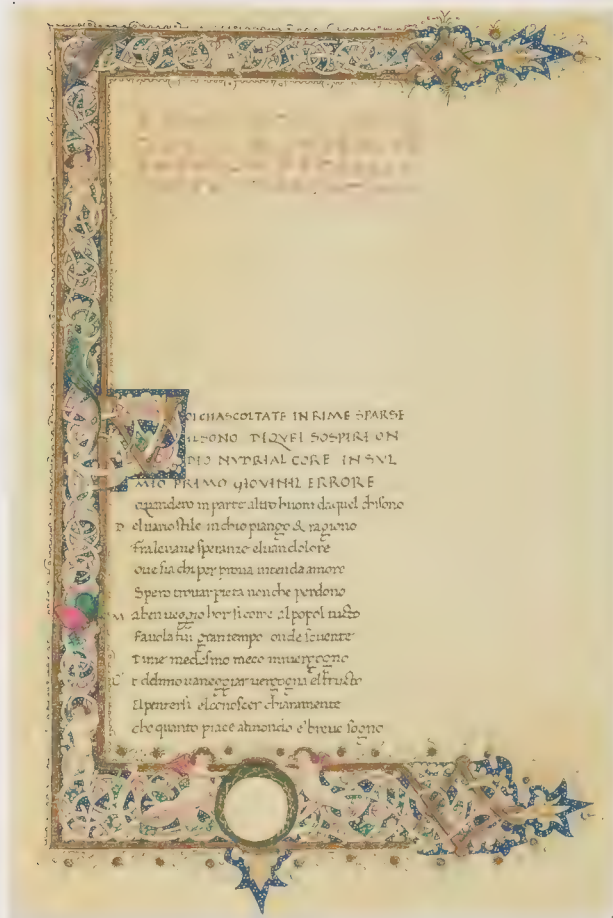 VOI CHASCOLTATE IN RIME SPARSE
IL SONO DI QVEI SOSPIRI ON
DIO NVDRIAL CORE IN SVL
MIO PRIMO GIOVINIL ERRORE
quandero in parte altro huom da quel chi sono
D el uario stile in chio piango & ragiono
fra le uane speranze el uan dolore
oue sia chi per proua intenda amore
Spero trouar pieta non che perdono
M a ben ueggio hor si come al popol tutto
fauola fui gran tempo onde souente
di me medesimo meco mi uergogno
E t del mio uaneggiar uergogna el fructo
El pentersi el conoscer chiaramente
che quanto piace al mondo e breue sogno